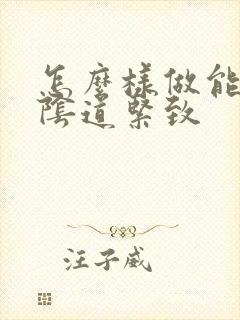 怎麼樣做能
陰道緊致
汪子威